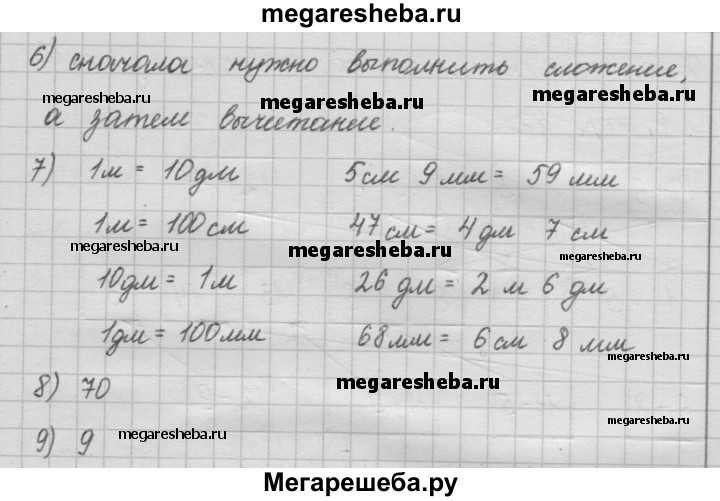 megaresheba.ru
6) сначала нужно выполнить сложение,
megaresheba.ru megaresheba.ru megaresheba.ru
а затем вычитание.
7) 1м = 10дм 5см 9мм = 59мм
megaresheba.ru
1м = 100см 47см = 4дм 7см
megaresheba.ru megaresheba.ru megaresheba.ru
10дм = 1м 26дм = 2м 6дм
1дм = 100мм 68мм = 6см 8мм
megaresheba.ru
8) 70 megaresheba.ru
megaresheba.ru
9) 9 megaresheba.ru
Мегарешеба.ру